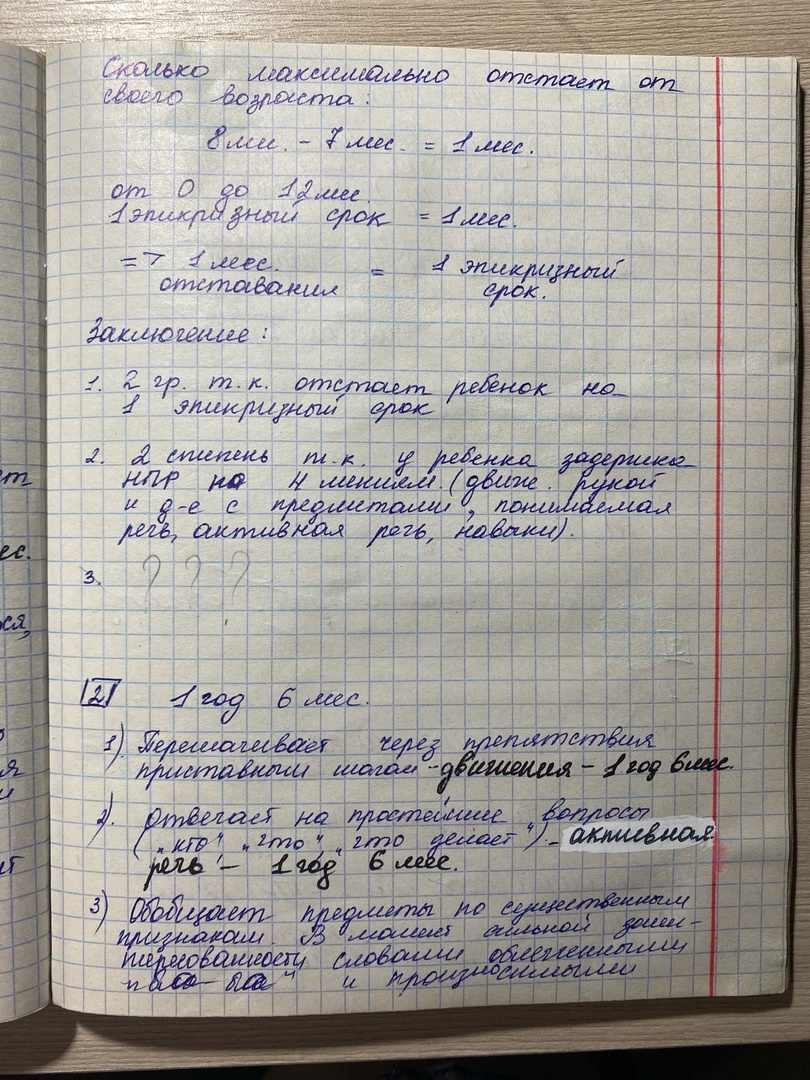 Сколько максимально отстает от
своего возраста:
8 мес. - 7 мес. = 1 мес.
от 0 до 12 мес.
1 эпикризный срок = 1 мес.
=> 1 мес. = 1 эпикризный
отставания срок.
Заключение:
1. 2 гр. т.к. отстает ребенок на
1 эпикризный срок
2. 2 степень т.к. у ребенка задержка
НПР на 4 линиям. (движ. рукой
и д-е с предметами, понимаемая
речь, активная речь, навыки).
3. ? ? ?
2 1 год 6 мес.
1). Перешагивает через препятствия
приставным шагом - движения - 1 год 6 мес.
2). отвечает на простейшие вопросы
("кто", "что", "что делает") - активная
речь - 1 год 6 мес.
3) Обобщает предметы по существенным
признакам. В момент сильной заин-
тересованности словами облегченными
"ба" и произносимыми
ст
ес.
ся,
я